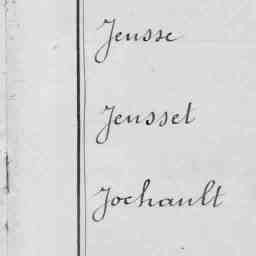 Jeusse
Jeusset
Jochault